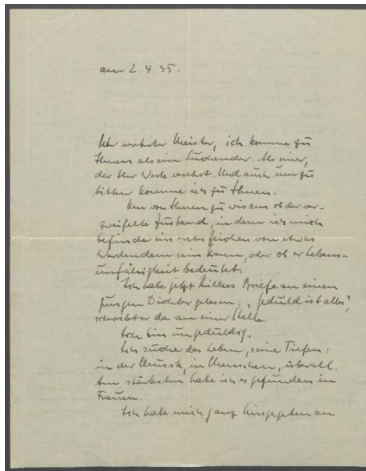 am 2. 4. 35.
Sehr verehrter Meister, ich komme zu
Ihnen als ein Suchender. Als einer,
der Ihr Werk verehrt. Und auch um zu
bitten komme ich zu Ihnen.
Um von Ihnen zu wissen ob der ver-
zweifelte Zustand, in dem ich mich
befinde ein erstes Zeichen von etwas
Werdendem sein kann, oder ob er Lebens-
unfähigkeit bedeutet.
Ich habe jetzt Rilkes Briefe an einen
jungen Dichter gelesen. "Geduld ist alles",
schreibt er da an einer Stelle.
Ich bin ungeduldig.
Ich suche das Leben, seine Tiefen:
in der Musik, in Menschen, überall.
Am stärksten habe ich es gefunden in
Frauen.
Ich habe mich ganz hingegeben an